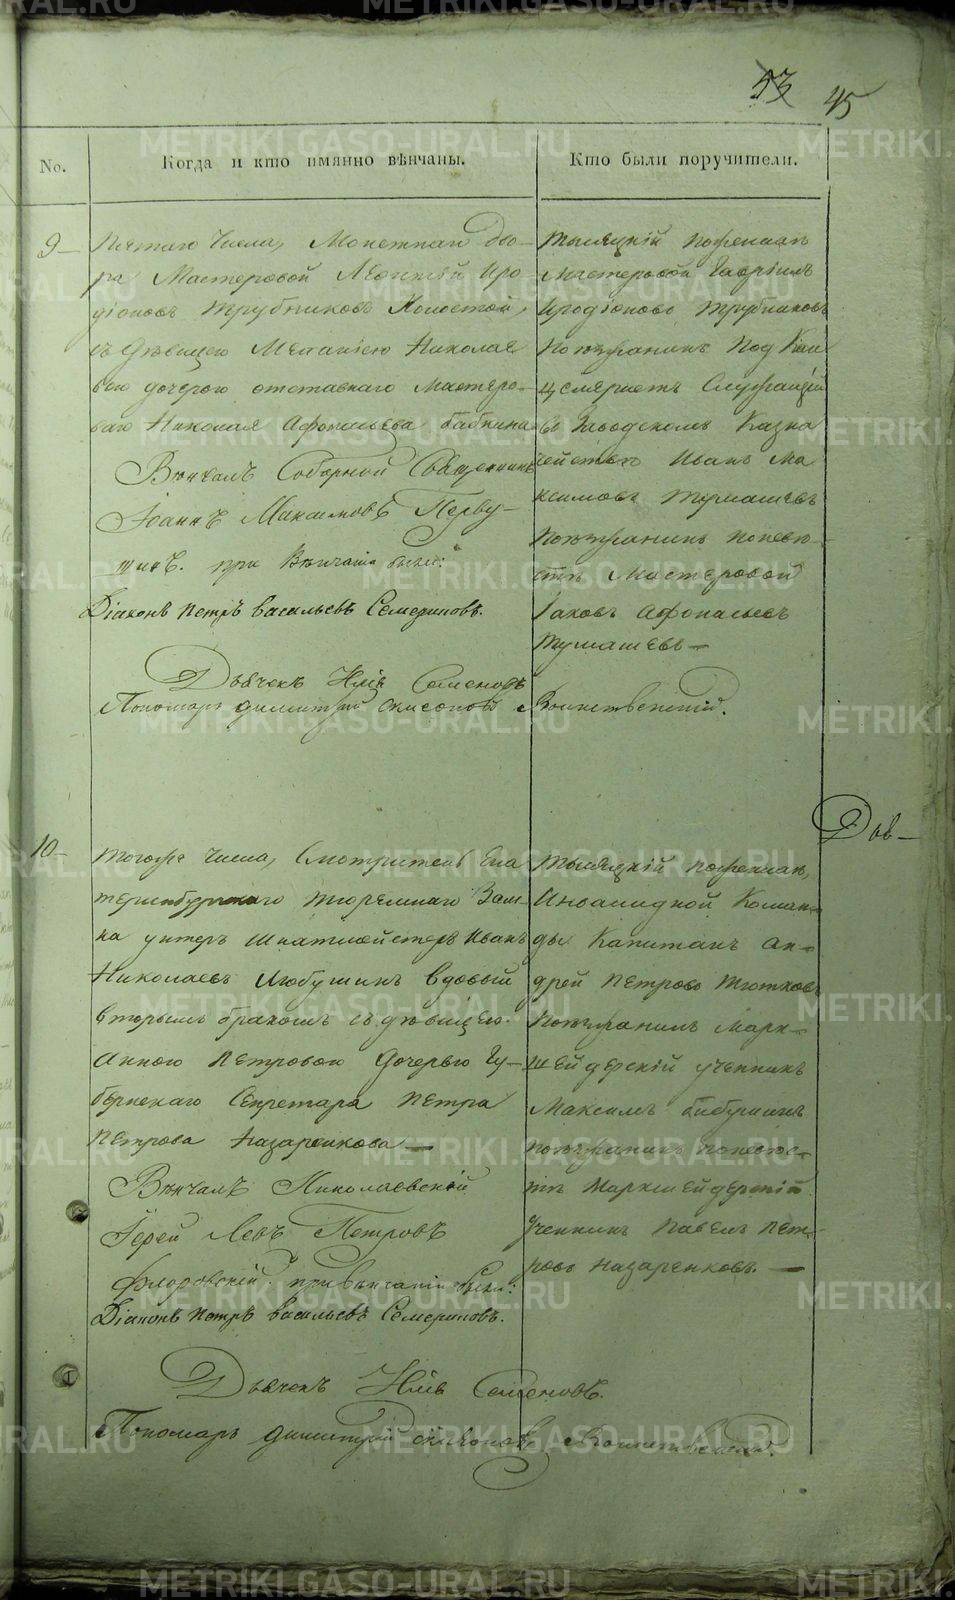 53 45
No.
Когда и кто имянно вѣнчаны.
Кто были поручители.
9
Пятаго Числа, Монетнаго дво-
ра Мастеровой Иро-
діоновъ Трубниковъ Холостой,
съ дѣвицею Меланіею Николае
вою дочерью отставнаго мастеро-
ваго Николая Афонасьева Бабкина
Вѣнчалъ Соборной Священникъ
Іоаннъ Максимовъ Перву-
шинъ. при Вѣнчаніи были:
Діаконъ Петръ Васильевъ Семериковъ.
Дьячекъ Илія Семеновъ
Пономарь Димитрій Воинственскій.
Тысяцкій поѣзжанъ
Мастеровой Гавріилъ
Иродіоновъ Трубниковъ
Поѣзжанинъ Под Кан
целяристъ Служащій
въ Заводскомъ Казна
чействѣ Иванъ Ма
ксимовъ Тумашевъ
Поѣзжанинъ по невѣ-
стѣ Мастеровой
Іаковъ Афонасьевъ
Тумашевъ
Дьв
10
Тогоже Числа, Смотритель Ека
теринбургскаго Тюремнаго Зам-
ка унтеръ Шихтмейстеръ Иванъ
Николаевъ Любушинъ вдовый
вторымъ бракомъ съ дѣвицею
Анною Петровою Дочерью Гу-
бернскаго Секретаря Петра
Петрова Назаренкова
Вѣнчалъ Николаевскій
Іерей Левъ Петровъ
Флоровскій. при венчаніи были:
Діаконъ Петръ Васильевъ Семериковъ.
Дьячекъ Илія Семеновъ.
Пономарь Димитрій Воинственскій.
Тысяцкій поѣзжан,
Инвалидной Коман-
ды Капитанъ Ан-
дрей Петровъ Тютковъ
Поѣзжанинъ Марк-
шейдерскій ученикъ
Максимъ Бабушинъ
поѣзжанинъ по невѣс-
тѣ Маркшейдерскій
Ученикъ Павелъ Пет-
ровъ Назаренковъ.
METRIKI.GASO-URAL.RU